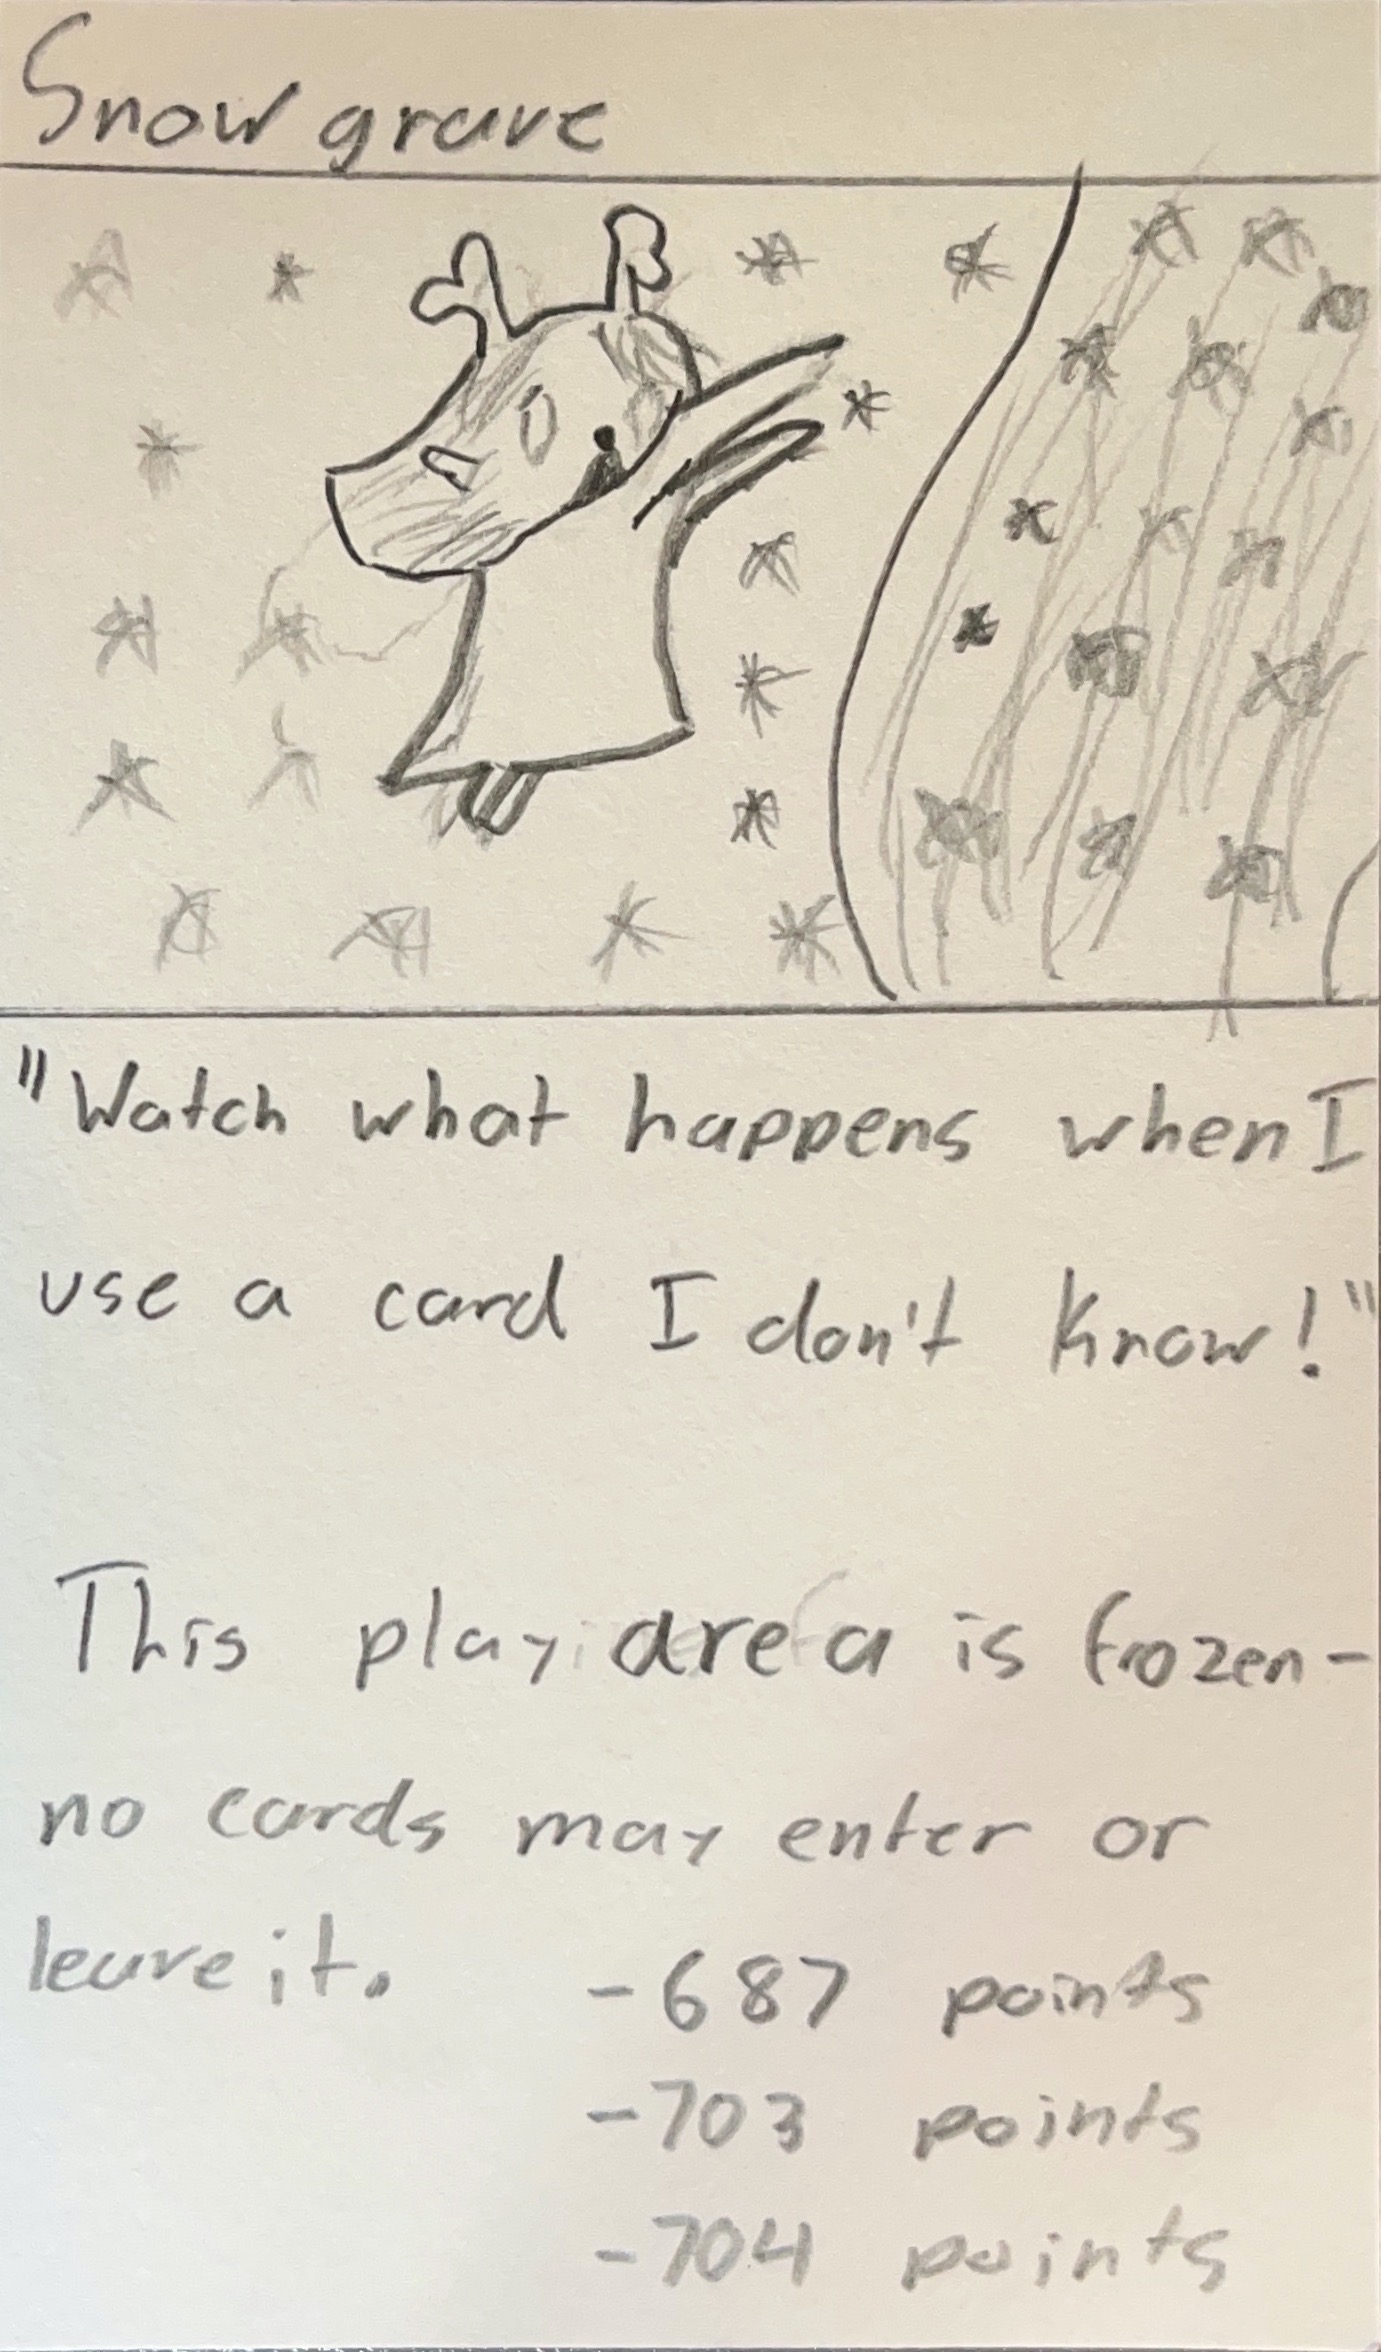 Snowgrave
"Watch what happens when I
use a card I don't know!"
This play area is frozen-
no cards may enter or
leave it. -687 points
-703 points
-704 points